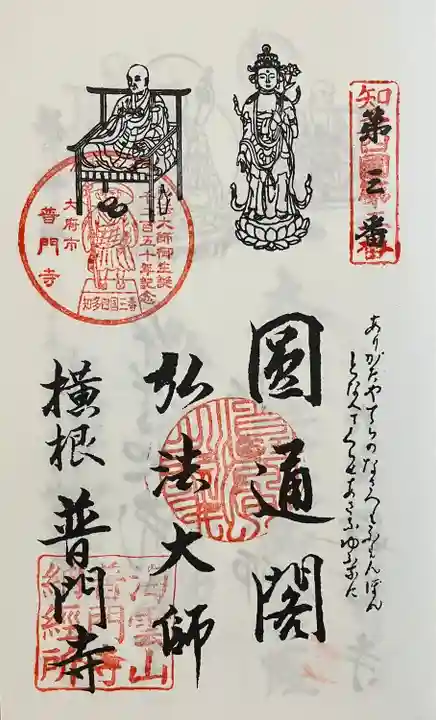 第三番
知四國霊場
ありがたやてらのなさへもふもんぼん
となへてくらせあさにゆふなに
圓通閣
弘法大師
弘法大師御生誕
千二百五十年記念
大府市
普門寺
知多四国三番
横根 普門寺
海雲山
普門寺
納経所